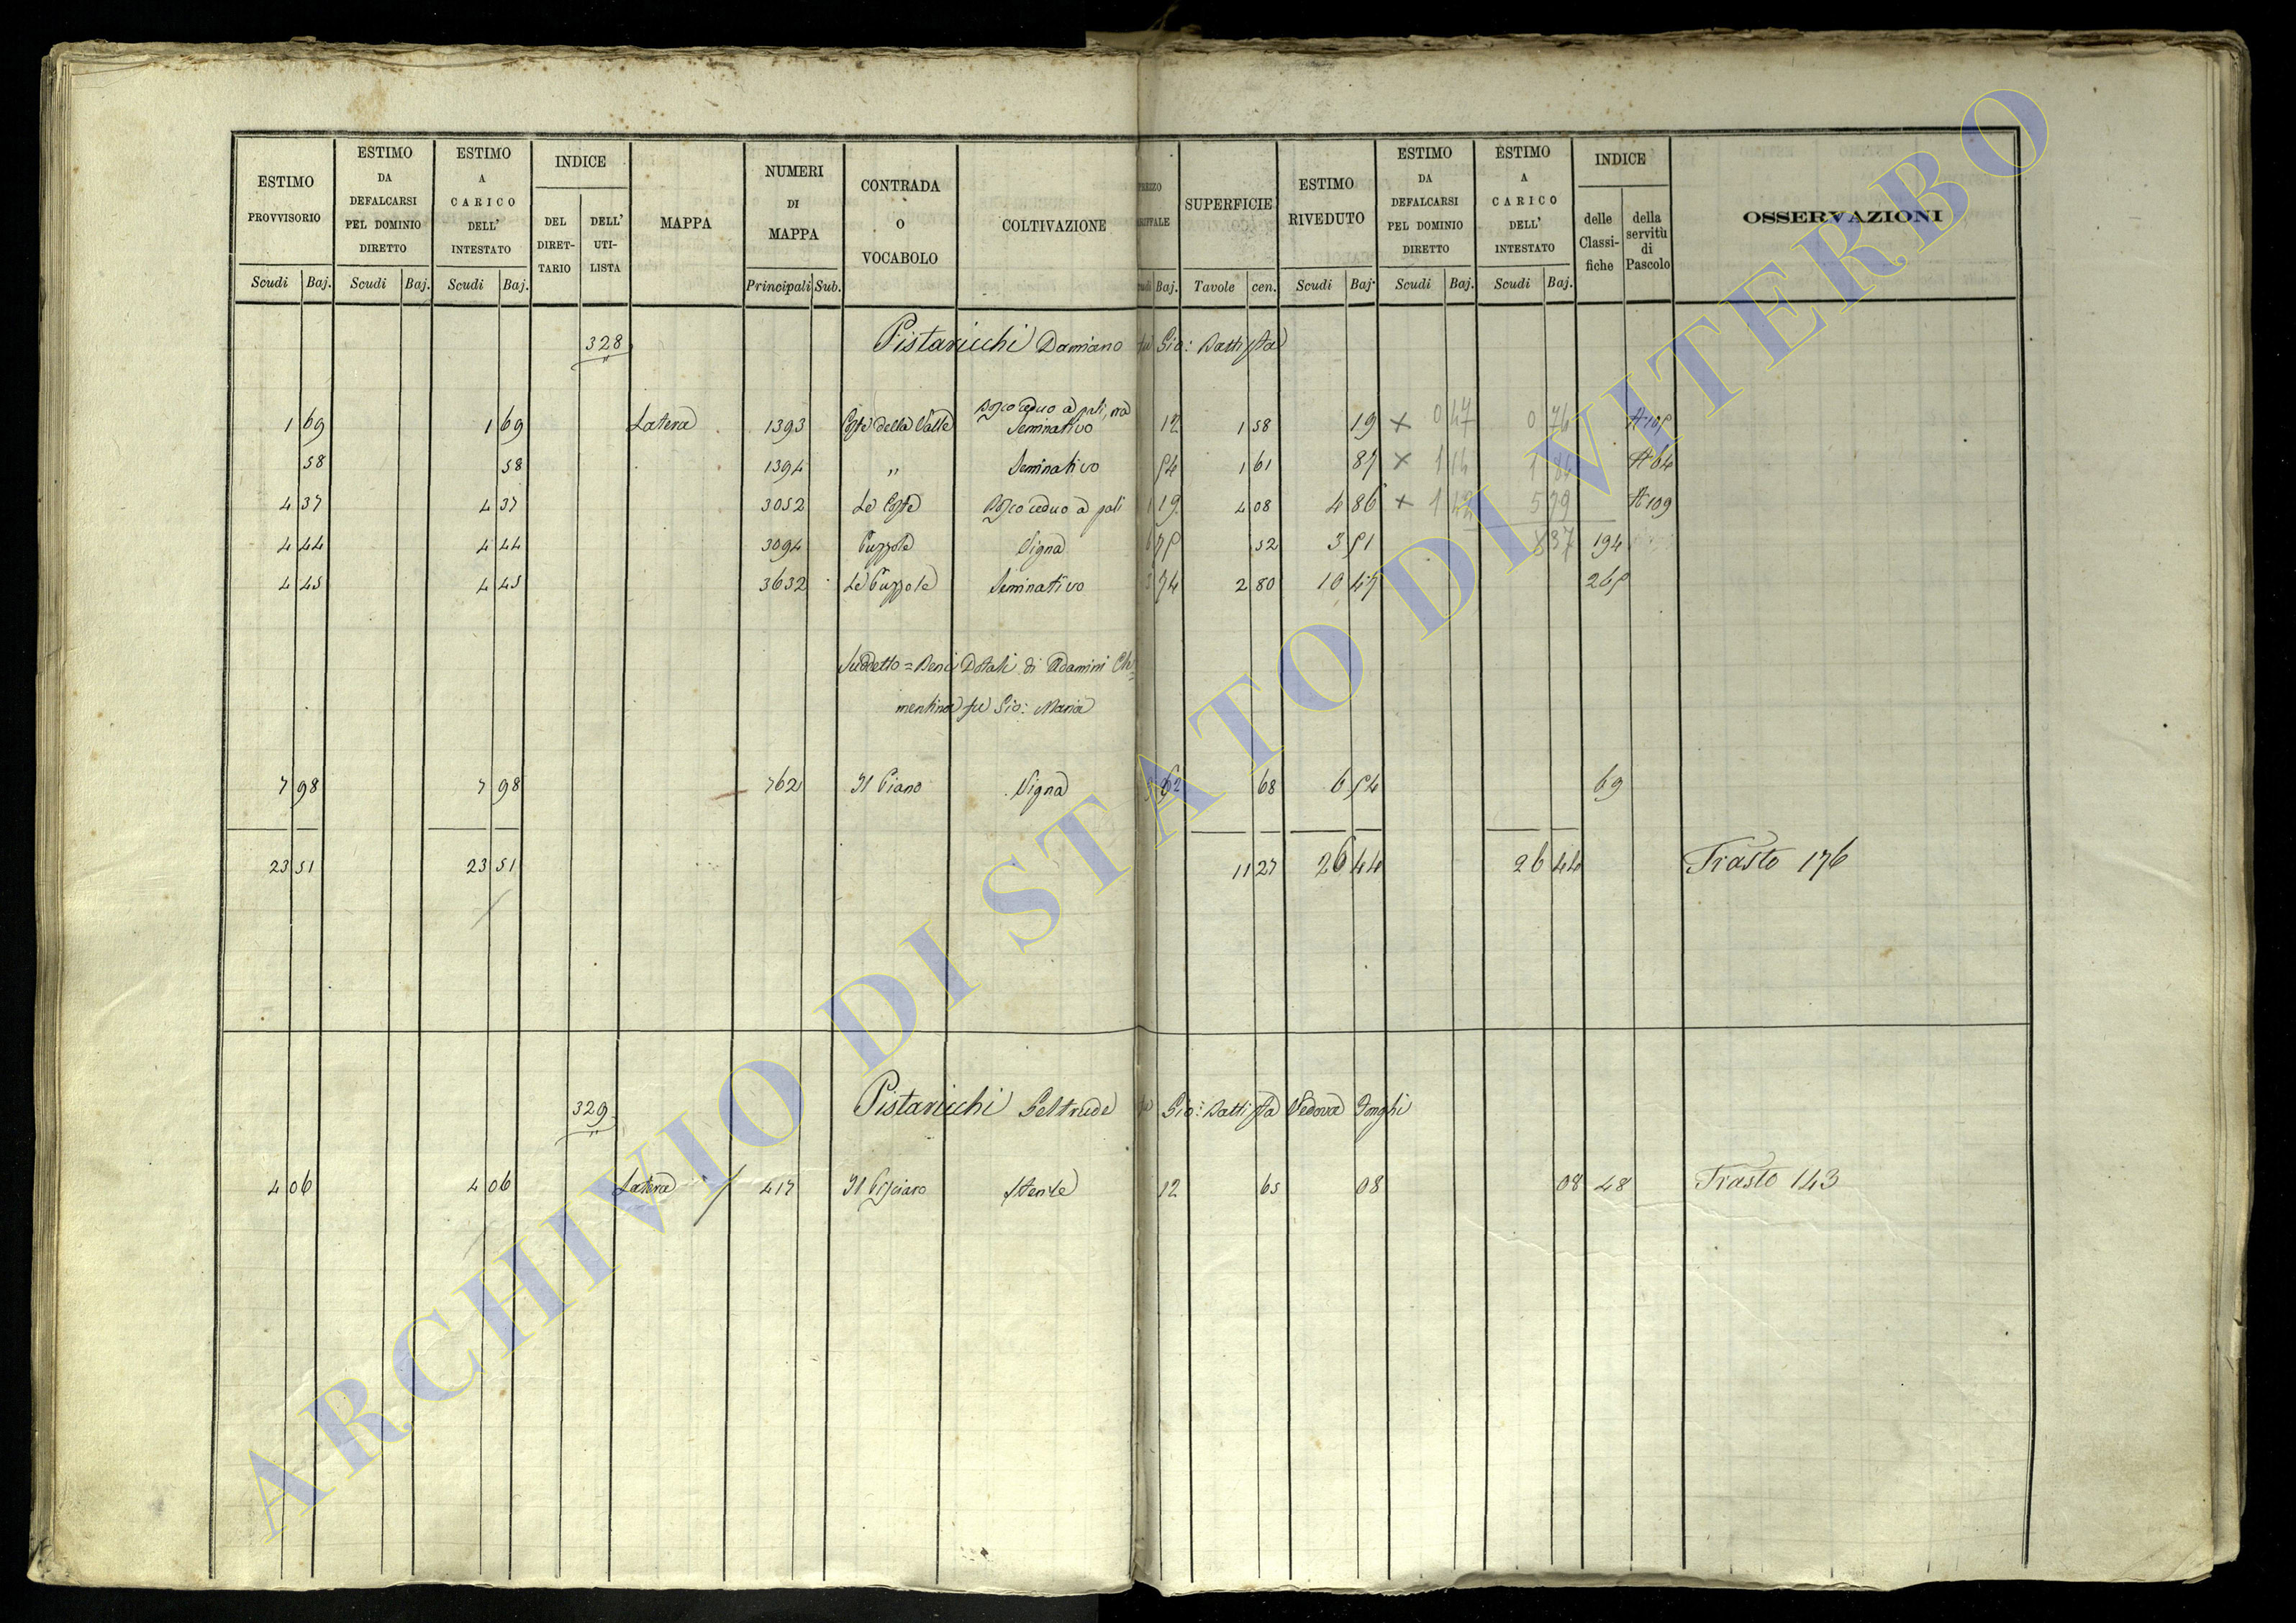 ESTIMO PROVVISORIO | ESTIMO DA DEFALCARSI PEL DOMINIO DIRETTO | ESTIMO A CARICO DELL' INTESTATO | INDICE | MAPPA | NUMERI DI MAPPA | CONTRADA O VOCABOLO | COLTIVAZIONE | SUPERFICIE | ESTIMO RIVEDUTO | ESTIMO DA DEFALCARSI PEL DOMINIO DIRETTO | ESTIMO A CARICO DELL' INTESTATO | INDICE | OSSERVAZIONI
DEL DIRETTARIO | DELL' UTILISTA | delle Classifiche | della servitù di Pascolo
Scudi | Baj. | Scudi | Baj. | Scudi | Baj. | Principali | Sub. | Baj. | Tavole | cen. | Scudi | Baj. | Scudi | Baj. | Scudi | Baj.
328 Pistaricchi Damiano fu Gio: Battista
Bosco ceduo a pali, ora
1 69 1 69 Latera 1393 Coste della Valle Seminativo 12 1 58 19 × 0 47 0 76 A 105
58 58 1394 " Seminativo 54 1 61 87 × 1 14 A 64
4 37 4 37 3052 Le Coste Bosco ceduo a pali 1 19 4 08 4 86 × 5 79 A 109
4 44 4 44 3094 Puzzole Vigna 6 75 52 3 51 194
4 45 4 45 3632 Le Puzzole Seminativo 3 74 2 80 10 47 265
Suddetto = Beni Dotali di Adamini Cle=
mentina fu Gio: Maria
7 98 7 98 762 Il Piano Vigna 9 62 68 6 54 69
23 51 23 51 11 27 26 44 26 44 Trasto 176
329 Pistaricchi Geltrude fu Gio: Battista Vedova Tonghi
4 06 4 06 Latera 417 Il Pisciaro Sterile 12 65 08 08 48 Trasto 143
ARCHIVIO DI STATO DI VITERBO